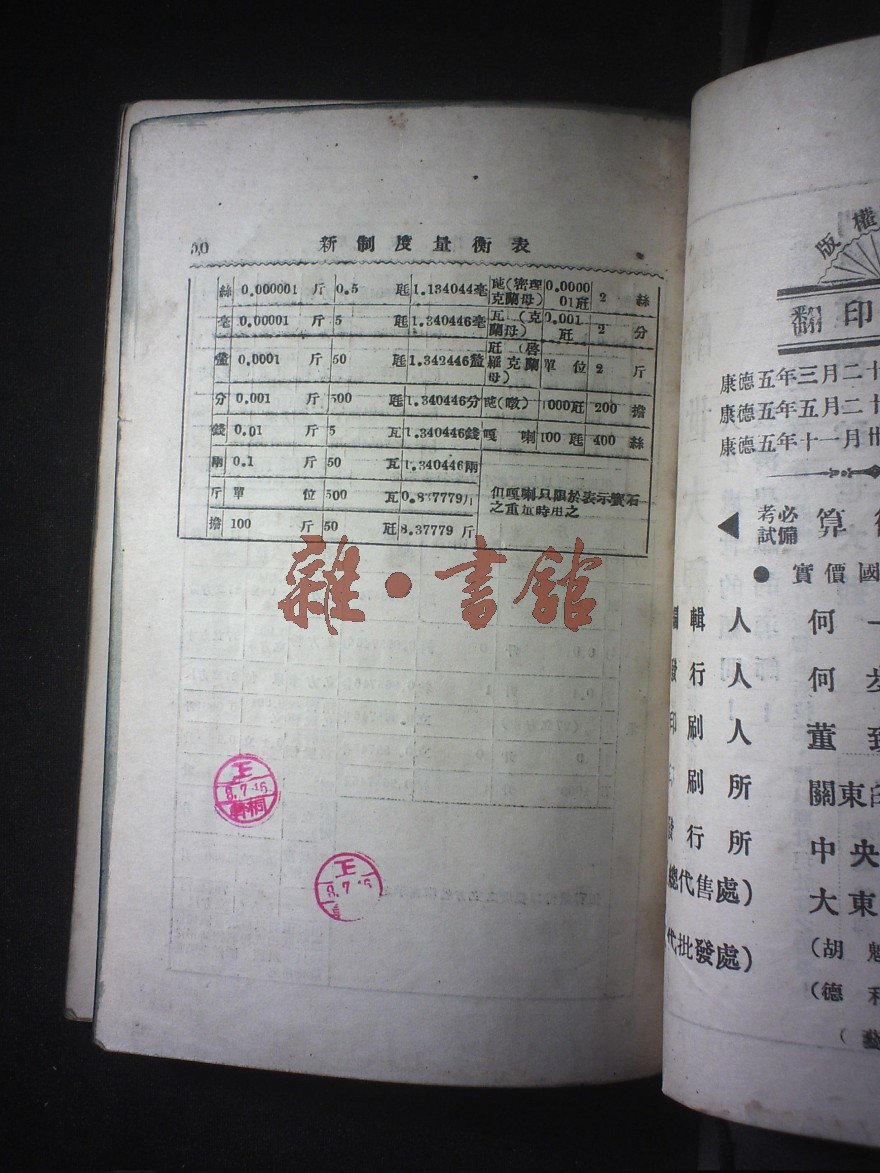 新制度量衡表
絲 0.000001 斤 0.5 瓱 1.134044毫 瓱(密理克蘭母) 0.000001瓩 2 絲
毫 0.00001 斤 5 瓱 1.340446毫 瓦(克蘭母) 0.001瓩 2 分
釐 0.0001 斤 50 瓱 1.342446釐 瓩(啓羅克蘭母) 單位 2 斤
分 0.001 斤 500 瓱 1.340446分 瓲(噸) 1000瓩 200 擔
錢 0.01 斤 5 瓦 1.340446錢 嘎喇 100 瓱 400 絲
兩 0.1 斤 50 瓦 1.340446兩
斤 單位 500 瓦 0.837779斤
擔 100 斤 50 瓩 8.37779 斤
但嘎喇只限於表示寶石
之重量時用之
雜·書館
正
8.7.15
正
8.7.15
版權
翻印
康德五年三月二十
康德五年五月二十
康德五年十一月卅
考試必備 算
● 實價國
編輯人 何一
發行人 何
印刷人 董
印刷所 關東
發行所 中央
總代售處) 大東
代批發處) (胡魁
(德
(藝